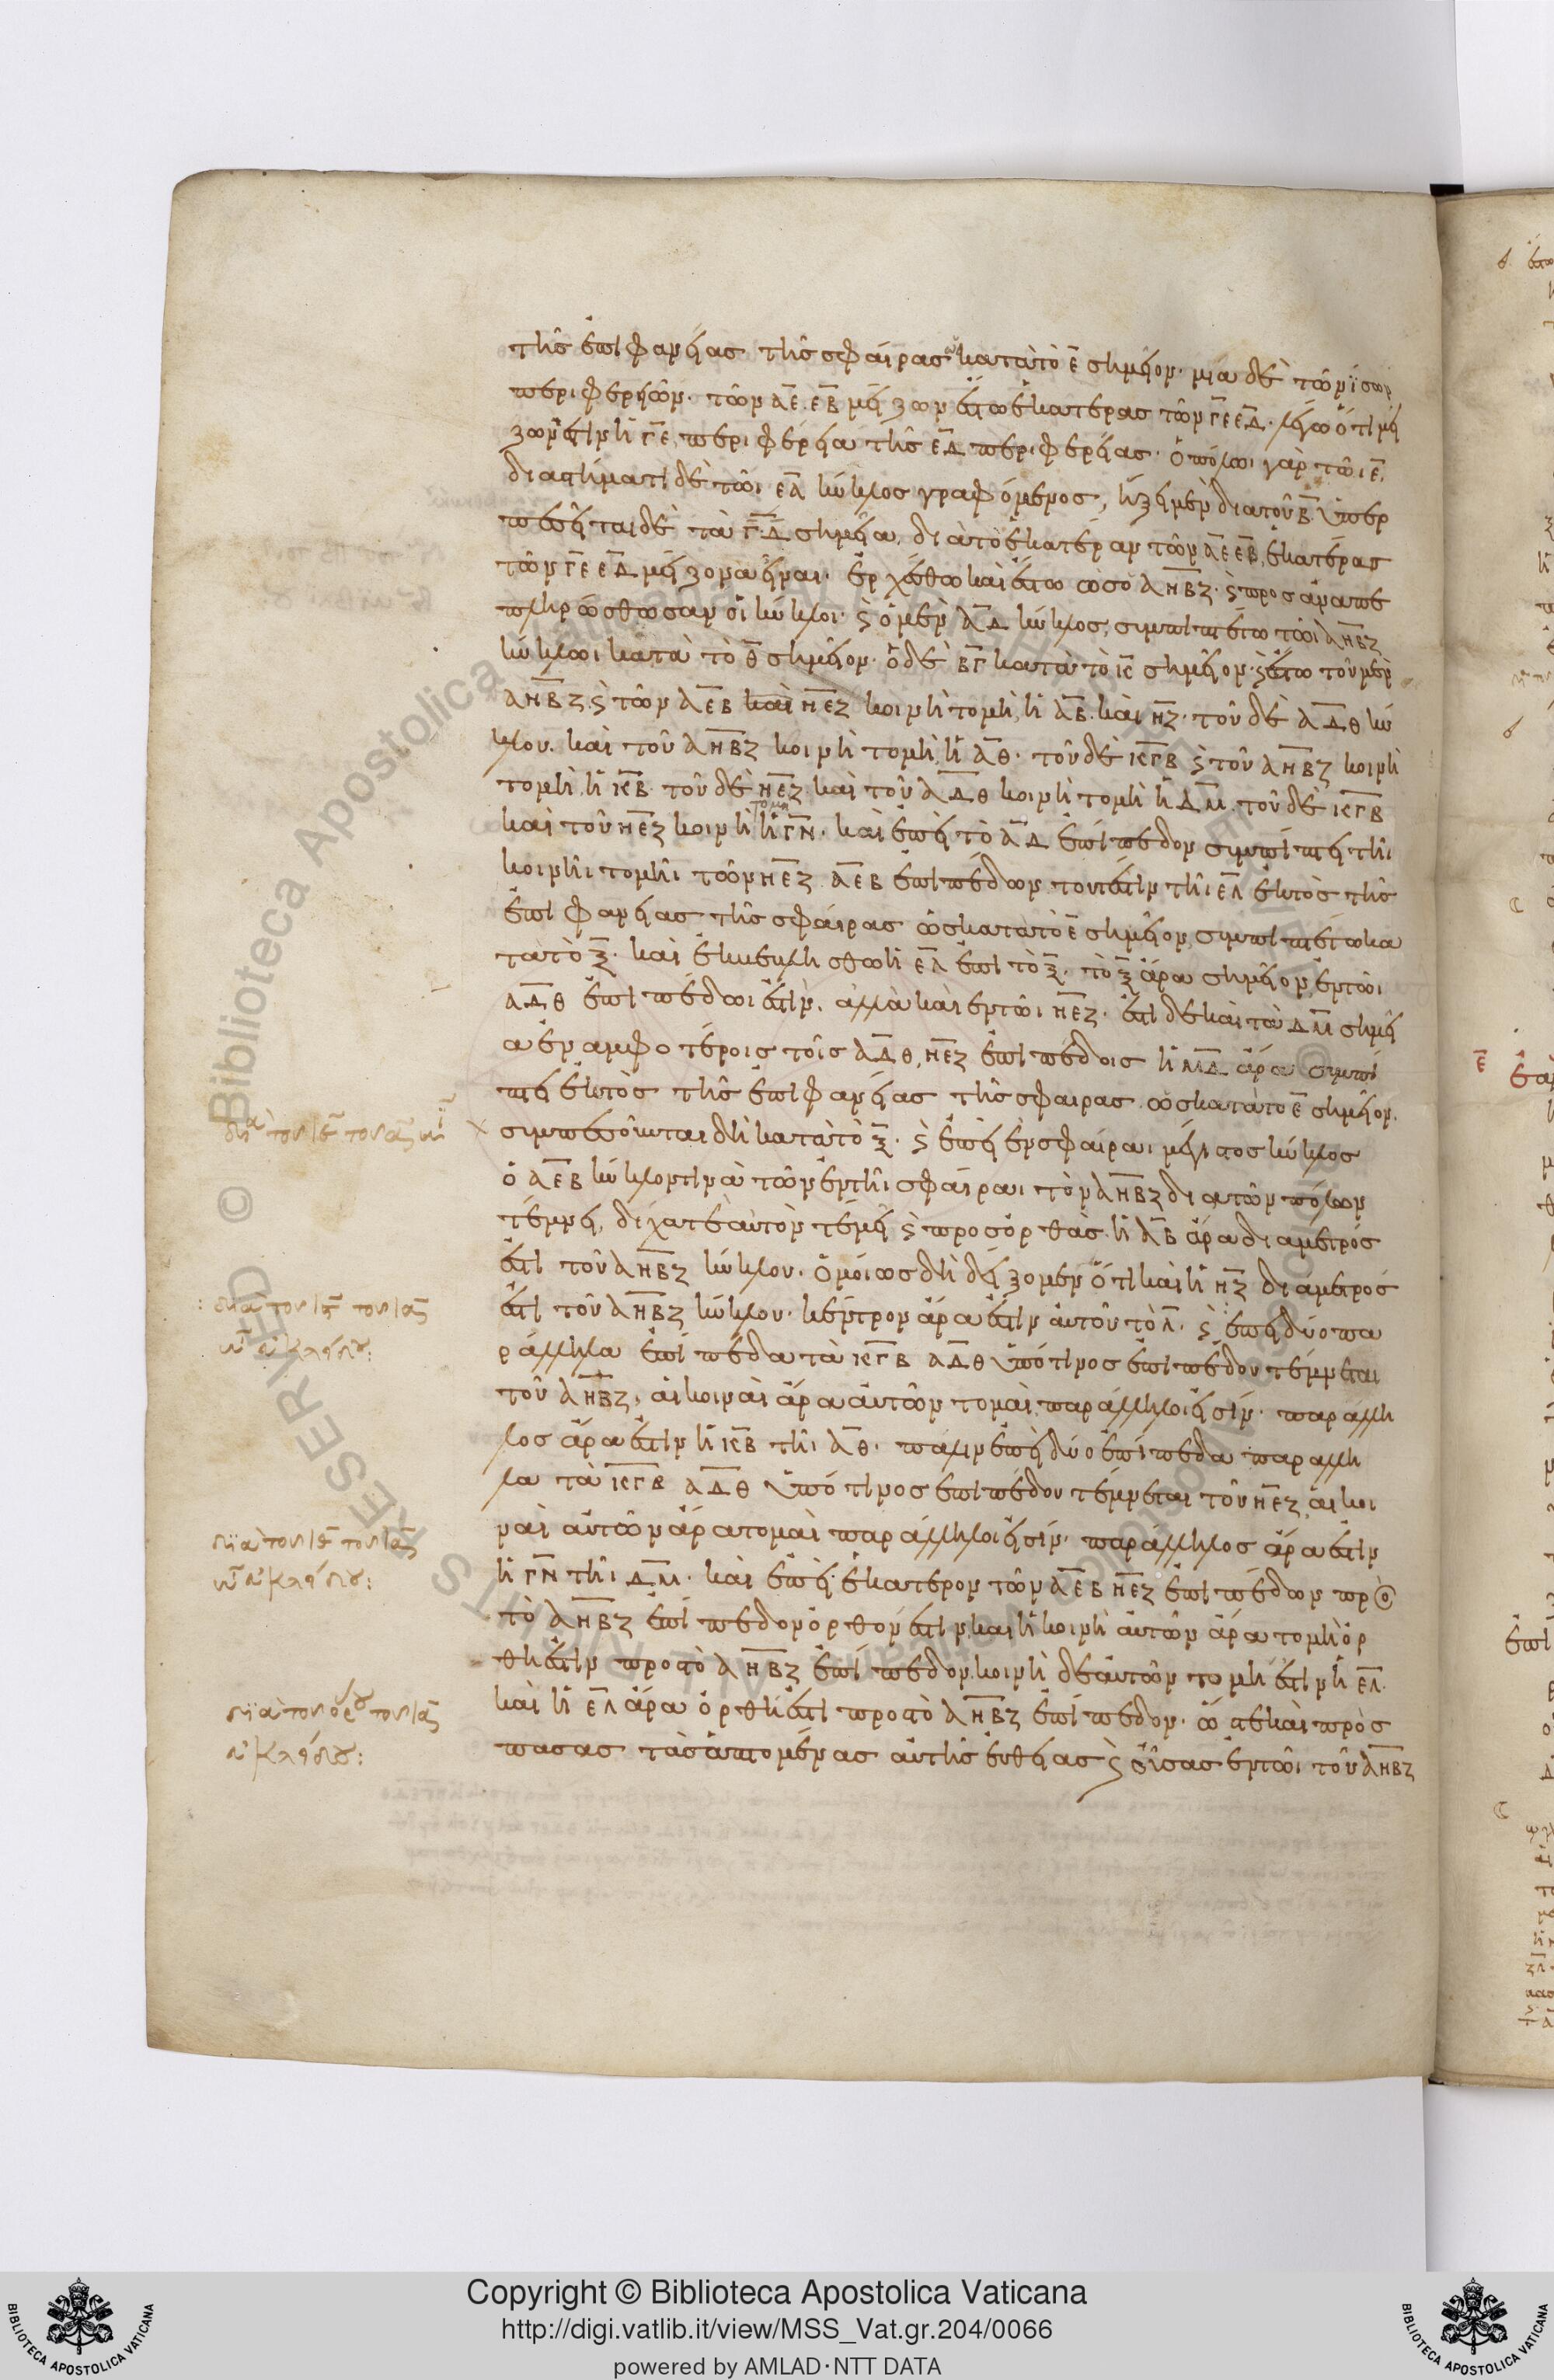 τῆς ἐπιφανείας τῆς σφαίρας ὡς κατὰ τὸ Ε σημεῖον· μία δὲ τῶν ἴσων
περιφερειῶν τῶν ΑΕ ΕΒ μείζων ἔστω ἑκατέρας τῶν ΓΕ ΕΔ· λέγω ὅτι μεί
ζων ἐστὶν ἡ ΓΕ περιφέρεια τῆς ΕΔ περιφερείας· ὁ πόλωι γὰρ τῶι Ε
διαστήματι δὲ τῶι ΕΑ κύκλος γραφόμενος, ἥξει μὲν διὰ τοῦ Β ὑπερ
πεσεῖται δὲ τὰ Γ Δ σημεῖα, διὰ τὸ ἑκατέραν τῶν ΑΕ ΕΒ ἑκατέρας
τῶν ΓΕ ΕΔ μείζονα εἶναι· ἐρχέσθω καὶ ἔστω ὡς ὁ ΑΗΒΖ· καὶ προσαναπε
πληρώσθωσαν οἱ κύκλοι· καὶ ὁ μὲν ΑΔ κύκλος συμπιπτέτω τῶι ΑΗΒΖ
κύκλωι κατὰ τὸ Θ σημεῖον· ὁ δὲ ΒΓ κατὰ τὸ Κ σημεῖον· καὶ ἔστω τοῦ μὲν
ΑΗΒΖ καὶ τῶν ΑΕΒ καὶ ΗΕΖ κοινὴ τομὴ ἡ ΑΒ καὶ ΗΖ· τοῦ δὲ ΑΔΘ κύ
κλου καὶ τοῦ ΑΗΒΖ κοινὴ τομὴ ἡ ΑΘ· τοῦ δὲ ΚΓΒ καὶ τοῦ ΑΗΒΖ κοινὴ
τομὴ ἡ ΚΒ· τοῦ δὲ ΗΕΖ καὶ τοῦ ΑΔΘ κοινὴ τομὴ ἡ ΔΜ· τοῦ δὲ ΚΓΒ
καὶ τοῦ ΗΕΖ κοινὴ τομὴ ἡ ΓΝ· καὶ ἐπεὶ τὸ ΑΔ ἐπίπεδον συμπίπτει τῆι
κοινῆι τομῆι τῶν ΗΕΖ ΑΕΒ ἐπιπέδων τουτέστιν τῆι ΕΛ ἐκτὸς τῆς
ἐπιφανείας τῆς σφαίρας ὡς κατὰ τὸ Ε σημεῖον, συμπιπτέτω κα
τὰ τὸ Ξ· καὶ ἐκβεβλήσθω ἡ ΕΛ ἐπὶ τὸ Ξ· τὸ Ξ ἄρα σημεῖον ἐν τῶι
ΑΔΘ ἐπιπέδωι ἐστίν· ἀλλὰ καὶ ἐν τῶι ΗΕΖ· ἔστι δὲ καὶ τὰ ΔΜ σημεῖ
α ἐν ἀμφοτέροις τοῖς ΑΔΘ, ΗΕΖ ἐπιπέδοις ἡ ΜΔ ἄρα συμπί
πτει ἐκτὸς τῆς ἐπιφανείας τῆς σφαίρας ὡς κατὰ τὸ Ε σημεῖον.
συμπεσοῦνται δὴ κατὰ τὸ Ξ· καὶ ἐπεὶ ἐν σφαίραι μέγιστος κύκλος
ὁ ΑΕΒ κύκλον τινὰ τῶν ἐν τῆι σφαίραι τὸν ΑΗΒΖ διὰ τῶν πόλων
τέμνει, δίχα τε αὐτὸν τέμει καὶ πρὸς ὀρθάς· ἡ ΑΒ ἄρα διάμετρός
ἐστι τοῦ ΑΗΒΖ κύκλου· ὁμοίως δὴ δείξομεν ὅτι καὶ ἡ ΗΖ διάμετρός
ἐστι τοῦ ΑΗΒΖ κύκλου· κέντρον ἄρα ἐστὶν αὐτοῦ τὸ Λ· καὶ ἐπεὶ δύο πα
ράλληλα ἐπίπεδα τὰ ΚΓΒ ΑΔΘ ὑπό τινος ἐπιπέδου τέμνεται
τοῦ ΑΗΒΖ, αἱ κοιναὶ ἄρα αὐτῶν τομαὶ παράλληλοί εἰσιν· παράλλη
λος ἄρα ἐστὶν ἡ ΚΒ τῆι ΑΘ· πάλιν ἐπεὶ δύο ἐπίπεδα παράλλη
λα τὰ ΚΓΒ ΑΔΘ ὑπό τινος ἐπιπέδου τέμνεται τοῦ ΗΕΖ, αἱ κοι
ναὶ αὐτῶν ἄρα τομαὶ παράλληλοί εἰσιν· παράλληλος ἄρα ἐστὶν
ἡ ΓΝ τῆι ΔΜ· καὶ ἐπεὶ ἑκάτερον τῶν ΑΕΒ ΗΕΖ ἐπιπέδων πρὸς
τὸ ΑΗΒΖ ἐπίπεδον ὀρθόν ἐστιν, καὶ ἡ κοινὴ αὐτῶν ἄρα τομὴ ὀρ
θή ἐστιν πρὸς τὸ ΑΗΒΖ ἐπίπεδον· κοινὴ δὲ αὐτῶν τομή ἐστιν ἡ ΕΛ·
καὶ ἡ ΕΛ ἄρα ὀρθή ἐστι πρὸς τὸ ΑΗΒΖ ἐπίπεδον· ὥστε καὶ πρὸς
πάσας τὰς ἁπτομένας αὐτῆς εὐθείας καὶ οὔσας ἐν τῶι τοῦ ΑΗΒΖ
Copyright © Biblioteca Apostolica Vaticana
http://digi.vatlib.it/view/MSS_Vat.gr.204/0066
powered by AMLAD·NTT DATA